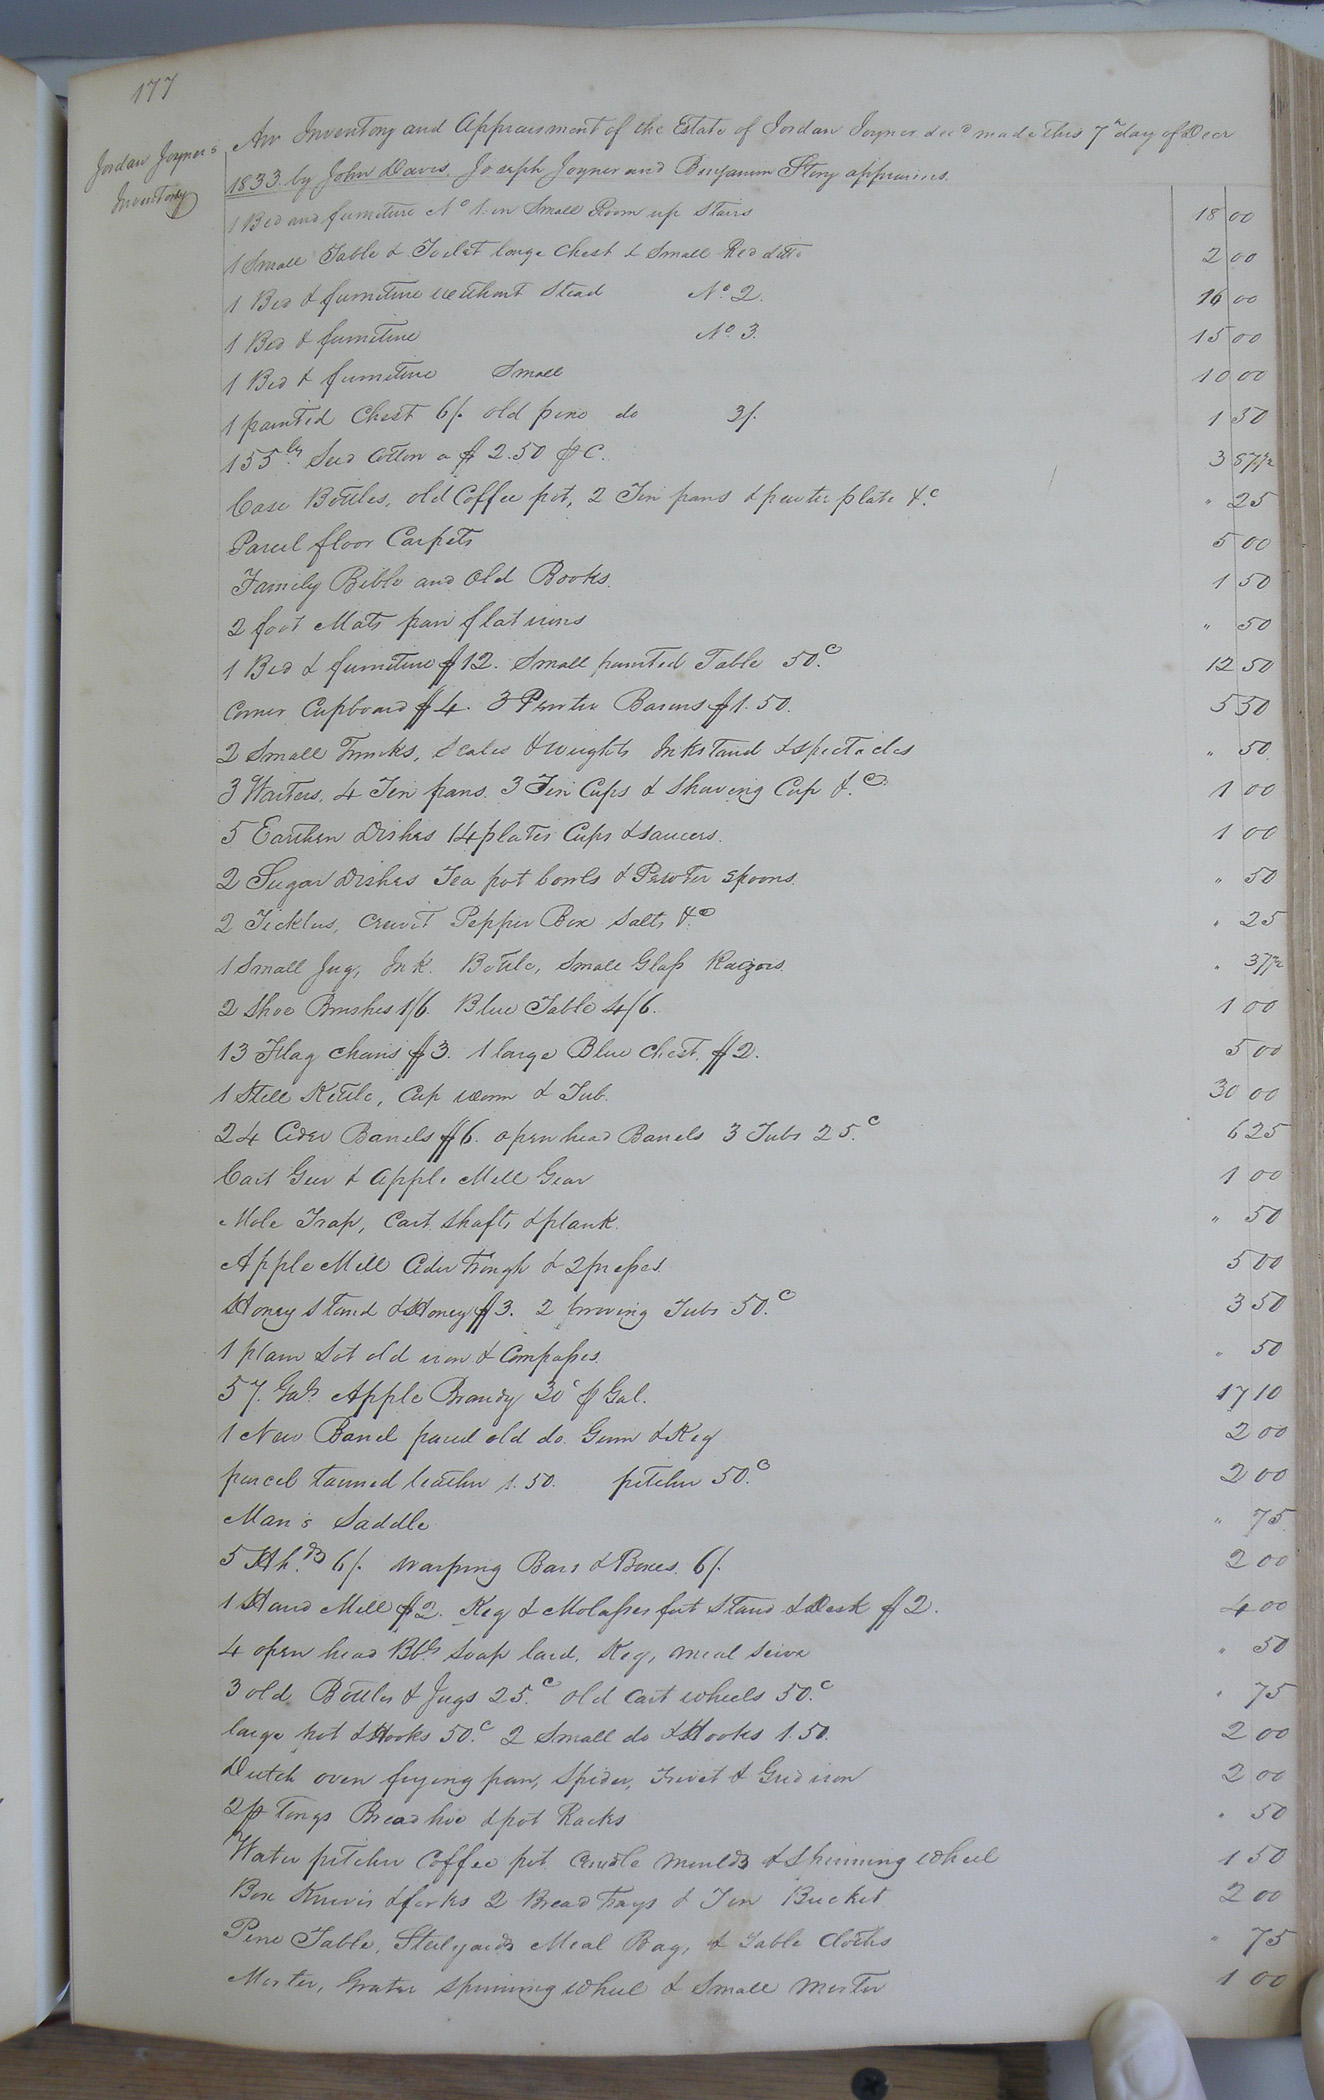 177
Jordan Joyner's
Inventory
An Inventory and Appraisment of the Estate of Jordan Joyner decd made this 7th day of Decr
1833. by John Davis, Joseph Joyner and Benjamin Story appraisers.
1 Bed and furniture No 1. in Small Room up Stairs 18 00
1 Small Table & Toilet large Chest & Small Red ditto 2 00
1 Bed & furniture without Stead No. 2. 16 00
1 Bed & furniture No. 3. 15 00
1 Bed & furniture Small 10 00
1 painted Chest 6/. old pine do 3/. 1 50
155 lbs Seed Cotton a $2.50 pr C. 3 87 1/2
Case Bottles, old Coffee pot, 2 Tin pans & pewter plate &c " 25
Parcel floor Carpets 5 00
Family Bible and old Books. 1 50
2 foot Mats pair flat irons " 50
1 Bed & furniture $12. Small painted Table 50.c 12 50
Corner Cupboard $4. 3 Pewter Basins $1.50. 5 50
2 Small Trunks, Scales & weights Inkstand & spectacles " 50
3 Waiters, 4 Tin pans. 3 Tin Cups & Shaving Cup &.c 1 00
5 Earthen Dishes 14 plates Cups & saucers. 1 00
2 Sugar Dishes Tea pot bowls & Pewter Spoons. " 50
2 Ticklers, Cruvit Pepper Box Salts &c " 25
1 Small Jug, Ink Bottle, Small Glass Raizors. " 37 1/2
2 Shoe Brushes 1/6. Blue Table 4/6. 1 00
13 Flag chairs $3. 1 large Blue Chest. $2. 5 00
1 Still Kettle, Cap worm & Tub. 30 00
24 Cider Barrels $6. open head Barrels 3 Tubs 25.c 6 25
Cart Geer & Apple Mill Gear 1 00
Mole Trap, Cart Shafts & plank. " 50
Apple Mill Cider Trough & 2 presses. 5 00
Honey Stand & Honey $3. 2 proving Tubs 50.c 3 50
1 plain Lot old iron & Compasses. " 50
57. Gals Apple Brandy 30c pr Gal. 17 10
1 New Barrel parcel old do. Gum & Keg 2 00
parcel tanned leather 1.50. pitcher 50.c 2 00
Man's Saddle " 75
5 Hhds 6/. Warping Bars & Boxes. 6/. 2 00
1 Hand Mill $2. Keg & Molasses fat Stand & Desk $2. 4 00
4 open head Bbls soap lard, Keg, meal seive " 50
3 old Bottles & Jugs 25.c old Cart wheels 50.c " 75
large pot & Hooks 50.c 2 Small do & Hooks 1.50. 2 00
Dutch oven frying pan, Spider, Trivet & Gridiron 2 00
2 pr Tongs Bread hoe & pot Racks " 50
Water pitcher Coffee pot Candle moulds & Spinning wheel 1 50
Box Knivis & forks 2 Bread Trays & Tin Bucket 2 00
Pine Table, Steelyards Meal Bag, & Table Cloths " 75
Morter, Grater Spinning wheel & Small Morter 1 00